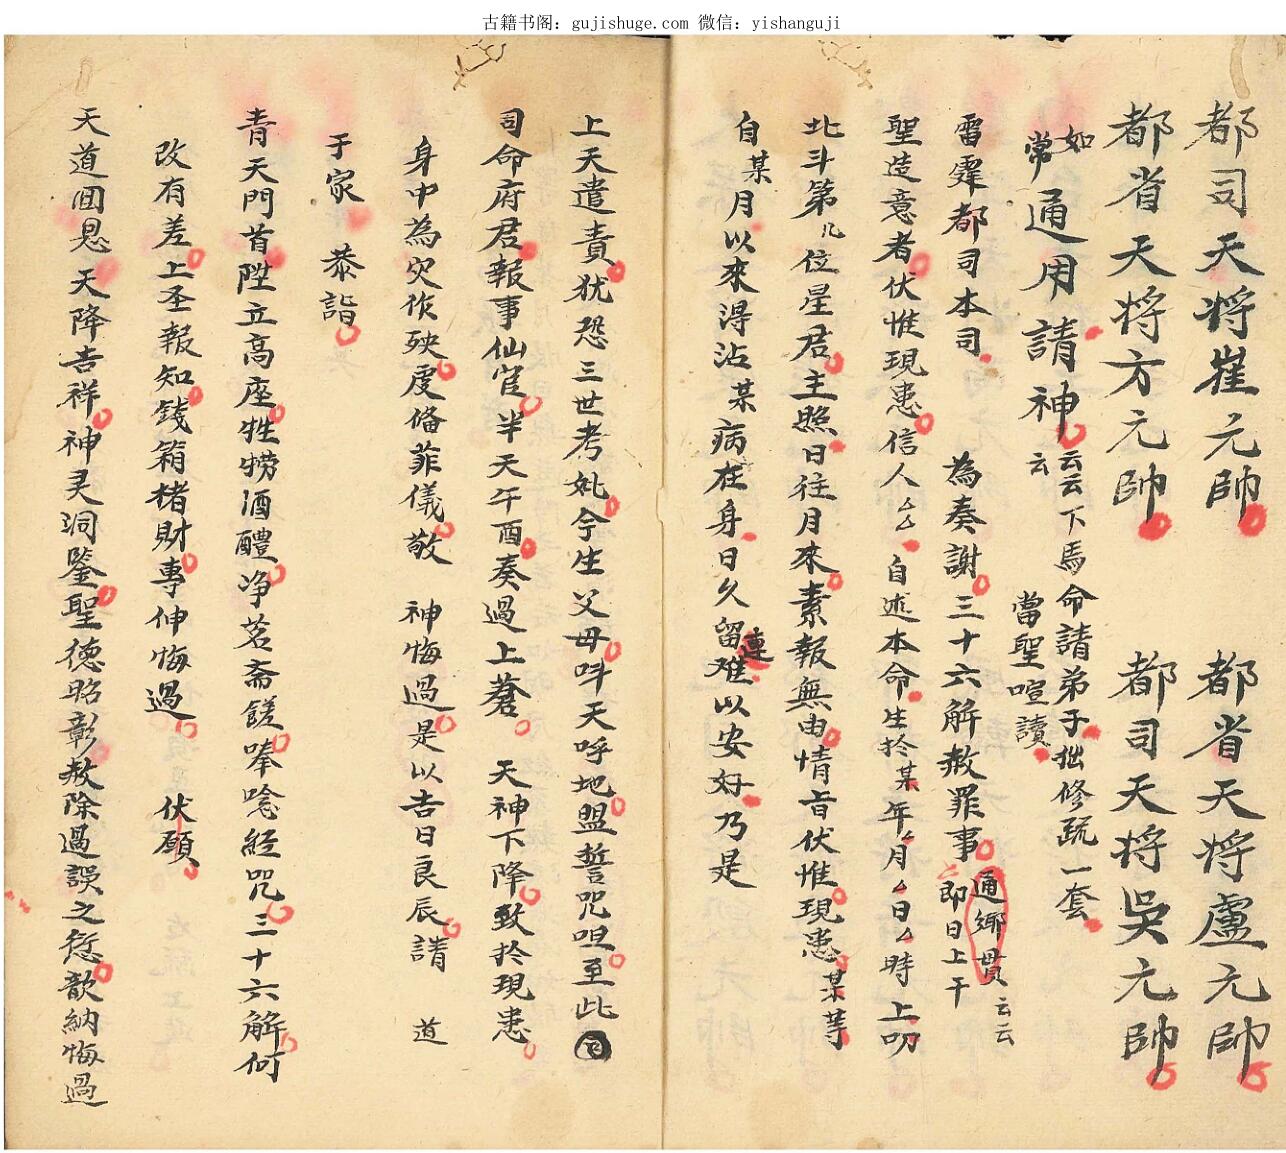 古籍书阁：gujishuge.com 微信：yishanguji
都司天将崔元帥 都省天将盧元帥
都省天将方元帥 都司天将吳元帥
如常通用請神云云云下馬命請弟子拙修疏一套當聖喧讀
雷霆都司本司 為奏謝三十六解赦罪事通鄉貫云云即日上干
聖造意者伏惟現患信人厶厶自述本命生於某年厶月厶日厶時上叨
北斗第几位星君主照日往月來素報無由情旨伏惟現患某等
自某月以來淂沾某病在身日久留連难以安好乃是
上天遣責犹恐三世考妣今生父母呌天呼地盟誓咒咀至此
司命府君報事仙官半天午酉奏過上蒼 天神下降致於現患
身中為灾作殃虔俻菲儀敬 神悔過是以吉日良辰請 道
于家 恭詣
青天門首陞立高座牲牢酒醴净茗斋饈唪唸経咒三十六解何
改有差上圣報知錢箱楮財專伸悔過 伏願
天道回恩天降吉祥神灵洞鑒聖德昭彰赦除過誤之愆歆納悔過